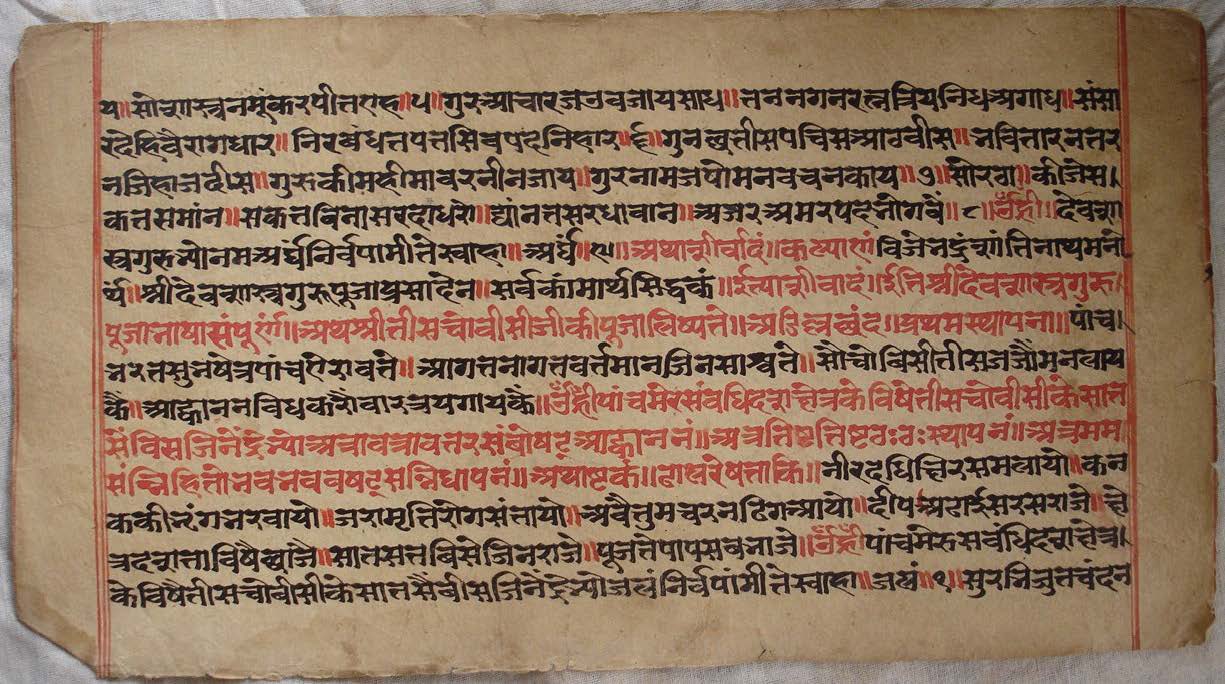 य॥सो
गुरआचारज उवजाय साध॥तन नगन रत्नत्रिय निध अगाध॥संसा
रदेहिवैरागधार॥निरबंध तपत सिवपद निहार॥६॥गुन छत्तीस पचिस आठवीस॥
न जिहाज ॥गुरुकी महीमा वरनी न जाय॥गुरनाम जपो मन वचन काय॥७॥सोरठा॥कीजे स
कत समांन॥सकत विना सरदहा धरो॥द्यांनत सरधावान॥अजर अमर पद भोगवे॥८॥ॐह्रीं॥देवशा
स्त्रगुरुभ्यो नम अर्घं निर्वपामीते स्वाहा॥अर्घं॥९॥अथाशीर्वादं॥
र्थं॥श्रीदेवशास्त्रगुरुपूजाप्रसादेन॥सर्वकांमार्थसिद्धकं॥ईत्याशीवादं॥ईति श्रीदेवशास्त्रगुरु
पूजा भाषा संपूर्णं॥अथ श्रीतीसचोवीसीजीकी पूजा लिष्यते॥अडिल्ल छंद॥प्रथम स्थापना॥पांच
भरत सुभ षेत्र पांच ऐरावते॥आगत नागत वर्तमान जिन सास्वते॥सो चोविसी तीस जजौ मन लाय
कै॥आह्वानन विध करौ वार त्रय गायकै॥ॐह्रीं पांचमेरुसंबंधि दशक्षेत्रके विषे तीसचोवीसीके सात
सै विस जिनेंद्रेभ्यो अत्रावत्रावतर संवोषट् आह्वाननं॥अत्र तिष्ट तिष्ट ठः ठः स्थापनं॥अत्र मम
संन्निहितो भव भव वषट् सन्निधापनं॥अथाष्टकं॥ नीरदधि छिर सम लायो॥कन
कके भृंग भरवायो॥जरामृति रोग संतायो॥अवै तुम चरन ढिग आयो॥दीप अढाई सरस राजे॥छे
त्र दश ता विषै छाजै॥सात सत विसे जिनराजे॥पूजते पाप सब भाजे॥ॐह्रीं पांचमेरुसबंधि दशक्षेत्र
के विषै तीसचोवीसीके सातसै वीस जिनेंद्रेभ्यो जलं निर्वपांमीते स्वाहा॥जलं॥१॥सुरभि जुत चंदन